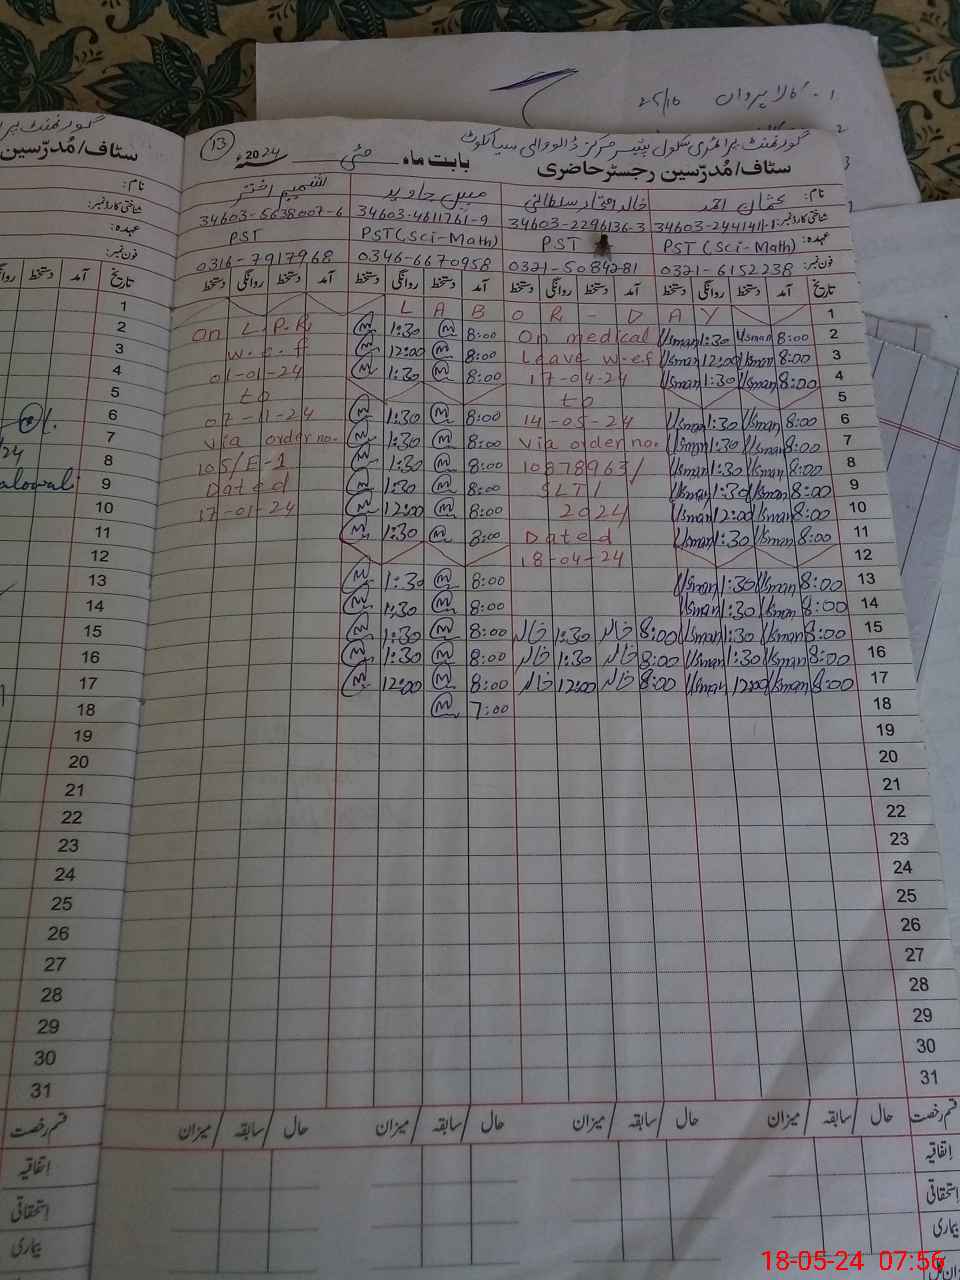 ۱۔ کالا پروان ۲۵/۱۰
گورنمنٹ پرائمری سکول سیالکوٹ
13
سٹاف/مُدرّسین رجسٹر حاضری بابت ماہ مئی 2024ء
سٹاف/مُدرّسین
نام: عثمان احمد خالد سلطانی جاوید شمیم اختر
شناختی کارڈ نمبر: 34603-2441411-1 34603-2296136-3 34603-4611761-9 34603-5638007-6
عہدہ: PST (Sci-Math) PST PST (Sci-Math) PST
فون نمبر: 0321-6152238 0321-5084281 0346-6670958 0316-7917968
تاریخ آمد دستخط روانگی دستخط آمد دستخط روانگی دستخط آمد دستخط روانگی دستخط آمد روانگی دستخط
1 L A B O R - D A Y 1
2 On L.P.R 1:30 8:00 On medical Usman 1:30 Usman 8:00 2
3 w.e.f 12:00 8:00 Leave w.e.f Usman 12:00 Usman 8:00 3
4 01-01-24 1:30 8:00 17-04-24 Usman 1:30 Usman 8:00 4
5 to to 5
6 07-11-24 1:30 8:00 14-05-24 Usman 1:30 Usman 8:00 6
7 via order no. 1:30 8:00 via order no. Usman 1:30 Usman 8:00 7
8 105/E-1 1:30 8:00 10878963/ Usman 1:30 Usman 8:00 8
9 Dated 1:30 8:00 SLT/ Usman 1:30 Usman 8:00 9
10 17-01-24 12:00 8:00 2024 Usman 12:00 Usman 8:00 10
11 1:30 8:00 Dated Usman 1:30 Usman 8:00 11
12 18-04-24 12
13 1:30 8:00 Usman 1:30 Usman 8:00 13
14 1:30 8:00 Usman 1:30 Usman 8:00 14
15 1:30 8:00 خالد 1:30 خالد 8:00 Usman 1:30 Usman 8:00 15
16 1:30 8:00 خالد 1:30 خالد 8:00 Usman 1:30 Usman 8:00 16
17 12:00 8:00 خالد 12:00 خالد 8:00 Usman 12:00 Usman 8:00 17
18 7:00 18
19 19
20 20
21 21
22 22
23 23
24 24
25 25
26 26
27 27
28 28
29 29
30 30
31 31
قسم رخصت حال / سابقہ / میزان حال / سابقہ / میزان حال / سابقہ / میزان حال / سابقہ / میزان قسم رخصت
اتفاقیہ اتفاقیہ
استحقاقی استحقاقی
بیماری بیماری
18-05-24 07:56